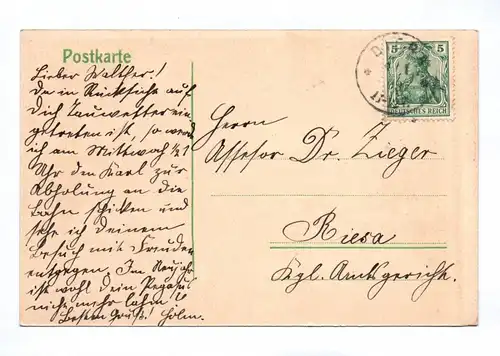 Postkarte
Lieber Walther!
Da in Rücksicht auf
Dich Tauwetter ein
getreten ist, so werde
ich am Mittwoch ½1
Uhr den Karl zur
Abholung an die
Bahn schicken und
sehe ich deinem
Besuch mit Freuden
entgegen. Im Neujahr
ist wohl dein Pegasus
nicht mehr lahm?
Besten Gruß! Holm.
5 5
DEUTSCHES REICH
Herrn
Assesor Dr. Zieger
Riesa
Kgl. Amtsgericht.